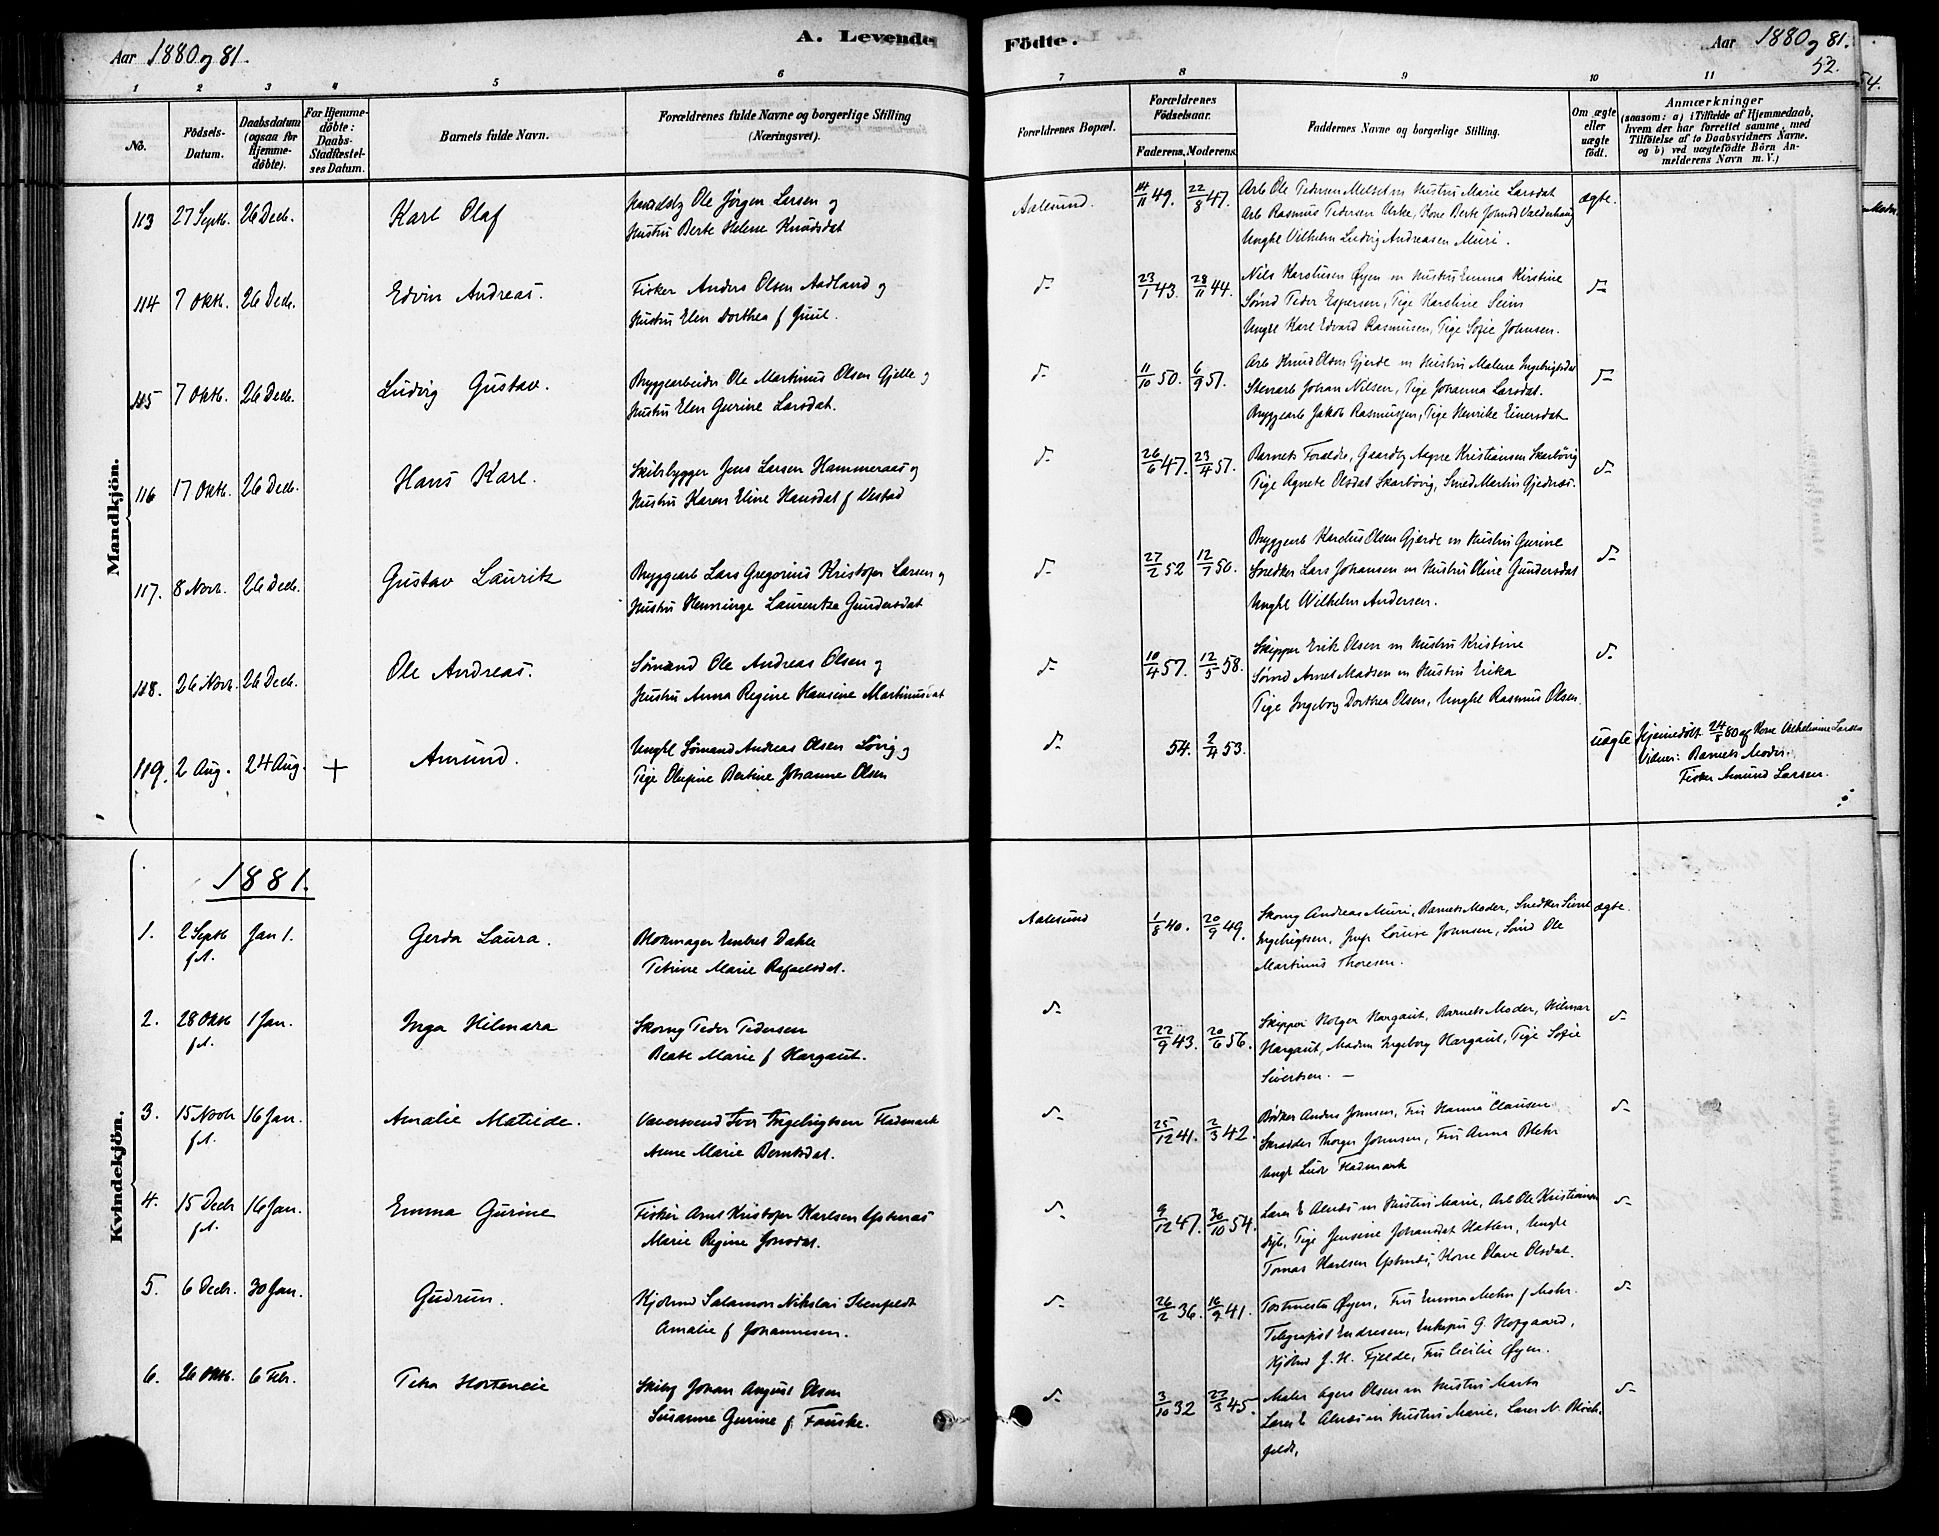 Aar 1880 og 81.
A. Levende Fødte.
Aar 1880 og 81.
52.
54.
1 2 3 4 5 6 7 8 9 10 11
No.
Födsels-Datum.
Daabsdatum (ogsaa for Hjemme-döbte).
For Hjemme-döbte: Daabs-Stadfæstel-ses Datum.
Barnets fulde Navn.
Forældrenes fulde Navne og borgerlige Stilling (Næringsvei).
Forældrenes Bopæl.
Forældrenes Födselsaar.
Faderens. Moderens.
Faddernes Navne og borgerlige Stilling.
Om ægte eller uægte født.
Anmærkninger
(saasom: a) i Tilfælde af Hjemmedaab, hvem der har forrettet samme, med Tilføielse af to Daabsvidners Navne. og b) ved uægtefödte Börn Anmelderens Navn m. V.)
Mandkjön.
113 27 Septb. 26 Dec. Karl Olaf Ole Jørgen Larsen og Aalesund. 14/11 49. 22/8 47. Arb Ole Pedersen Melseten Hustru Marie Larsdat ægte.
Hustru Berte Helene Knudsdat Arb Rasmus Pedersen Urke, Kone Berte Johnsd Valderhaug
Ungkl Vilhelm Ludvig Andreasen Muri.
114 7 Oktb. 26 Dec. Edvin Andreas. Fisker Anders Olsen Aadland og d- 23/1 43. 28/11 44. Nils Karolusen Øyen m Hustru Emma Kirstine d-
Hustru Elen Dorthea f Juul. Sømd Peder Espersen, Pige Karoline Seim
Ungkl Karl Edvard Rasmusen, Pige Sofie Johnsen.
115 7 Oktb. 26 Dec. Ludvig Gustav. Bryggearbeider Ole Martinus Olsen Gjelle og d- 11/10 50. 6/9 51. Arb Knud Olsen Gjerde m Hustru Malene Ingebrigtsdat d-
Hustru Elen Gurine Larsdat. Stenarb Johan Nilsen, Pige Johanna Larsdat.
Bryggearb Jakob Rasmussen, Pige Henrike Einersdat
116 17 Oktb. 26 Dec. Hans Karl. Skibsbygger Jens Larsen Hammeraas og d- 26/6 47. 23/4 51. Barnets Forældre, Gaardbr Agne Kristiansen Skarbövig d-
Hustru Karen Eline Hansdat f Vestad Pige Agnete Olsdat Skarbövig, Smed Martin Gjednæs.
117. 8 Novb. 26 Dec. Gustav Lauritz Bryggearb Lars Gregorius Kristofer Larsen og d- 27/2 52 12/7 50. Bryggearb Karolus Olsen Gjerde m Hustru Gurine d-
Hustru Henninge Laurentze Gundersdat Snedker Lars Johansen m Hustru Oline Gundersdat
Ungkl Wilhelm Andersen.
118. 26 Novb. 26 Dec. Ole Andreas. Sømand Ole Andreas Olsen og d- 10/4 57. 12/5 58. Skipper Erik Olsen m Hustru Kristine d-
Hustru Anna Regine Hansine Martinusdat Sømd Arnet Madsen m Hustru Erika
Pige Ingeborg Dorthea Olsen, Ungkl Rasmus Olsen
119. 2 Aug. 24 Aug. + Amund. Ungkl Sømand Andreas Olsen Løvig og d- 54. 2/4 53. uægte Hjemmedøbt 24/8 80 af Kone Vilhelmine Larsen
Pige Olufine Bertine Johanne Olsen Vidner: Barnets Moder.
Fisker Amund Larsen.
Kvindekjön.
1881.
1. 2 Septb f.A. Jan 1. Gerda Laura. Blokmager Embret Dahle Aalesund 1/8 40. 20/9 49. Skomg Andreas Muri, Barnets Moder, Snedker Sivert ægte.
Petrine Marie Rafaelsdat. Ingebrigtsen, Jmfr Louise Johnsen, Sömd Ole
Martinus Thoresen.
2. 28 Oktb f.A. 1 Jan. Inga Hilmara Skomg Peder Pedersen d- 22/9 43. 20/6 56. Skipper Holger Hargaut, Barnets Moder, Hilmar d-
Beate Marie f Hargaut. Hargaut, Madm Ingeborg Hargaut, Pige Sofie
Sivertsen. —
3. 15 Novb f.A. 16 Jan. Amalie Matilde. Iver Ingebrigtsen Flademark d- 25/12 41. 2/3 42. Bödker Anders Johnsen, Fru Hanna Clausen d-
Anne Marie Berntsdat. Skrædder Thorger Johnsen, Fru Anna Blehr
Ungk Ludv Flademark
4. 15 Decb f.A. 16 Jan. Emma Gurine Fisker Arnt Kristofer Karlsen Ystenæs d- 9/12 47. 30/10 54. Lærer E Alnæs m Hustru Marie, Arb Ole Kristiansen d-
Marie Regine Jonsdat. Pige Jensine Johansdat Hatlen, Ungkl
Tomas Karlsen Ystenæs, Kone Olave Olsdat.
5. 6 Decb. 30 Jan. Gudrun. Kjöbmd Salamon Nikolai d- 26/2 36. 16/9 41. Postmester Øyen, Fru Emma Mehn f Mohr. d-
Amalie f Johannesen. Telegrafist Endresen, Enkefru G. Hofgaard,
Kjöbmd J. H. Fjelde, Fru Cecilie Øyen.
6. 26 Oktb. 6 Feb. Petra Hortensie Skibsf Johan August Olsen d- 3/10 32 23/3 45. Maler Agers Olsen m Hustru Marta d-
Susanne Gurine f Fauske. Lærer E Alnæs m Hustru Marie, Lærer N.